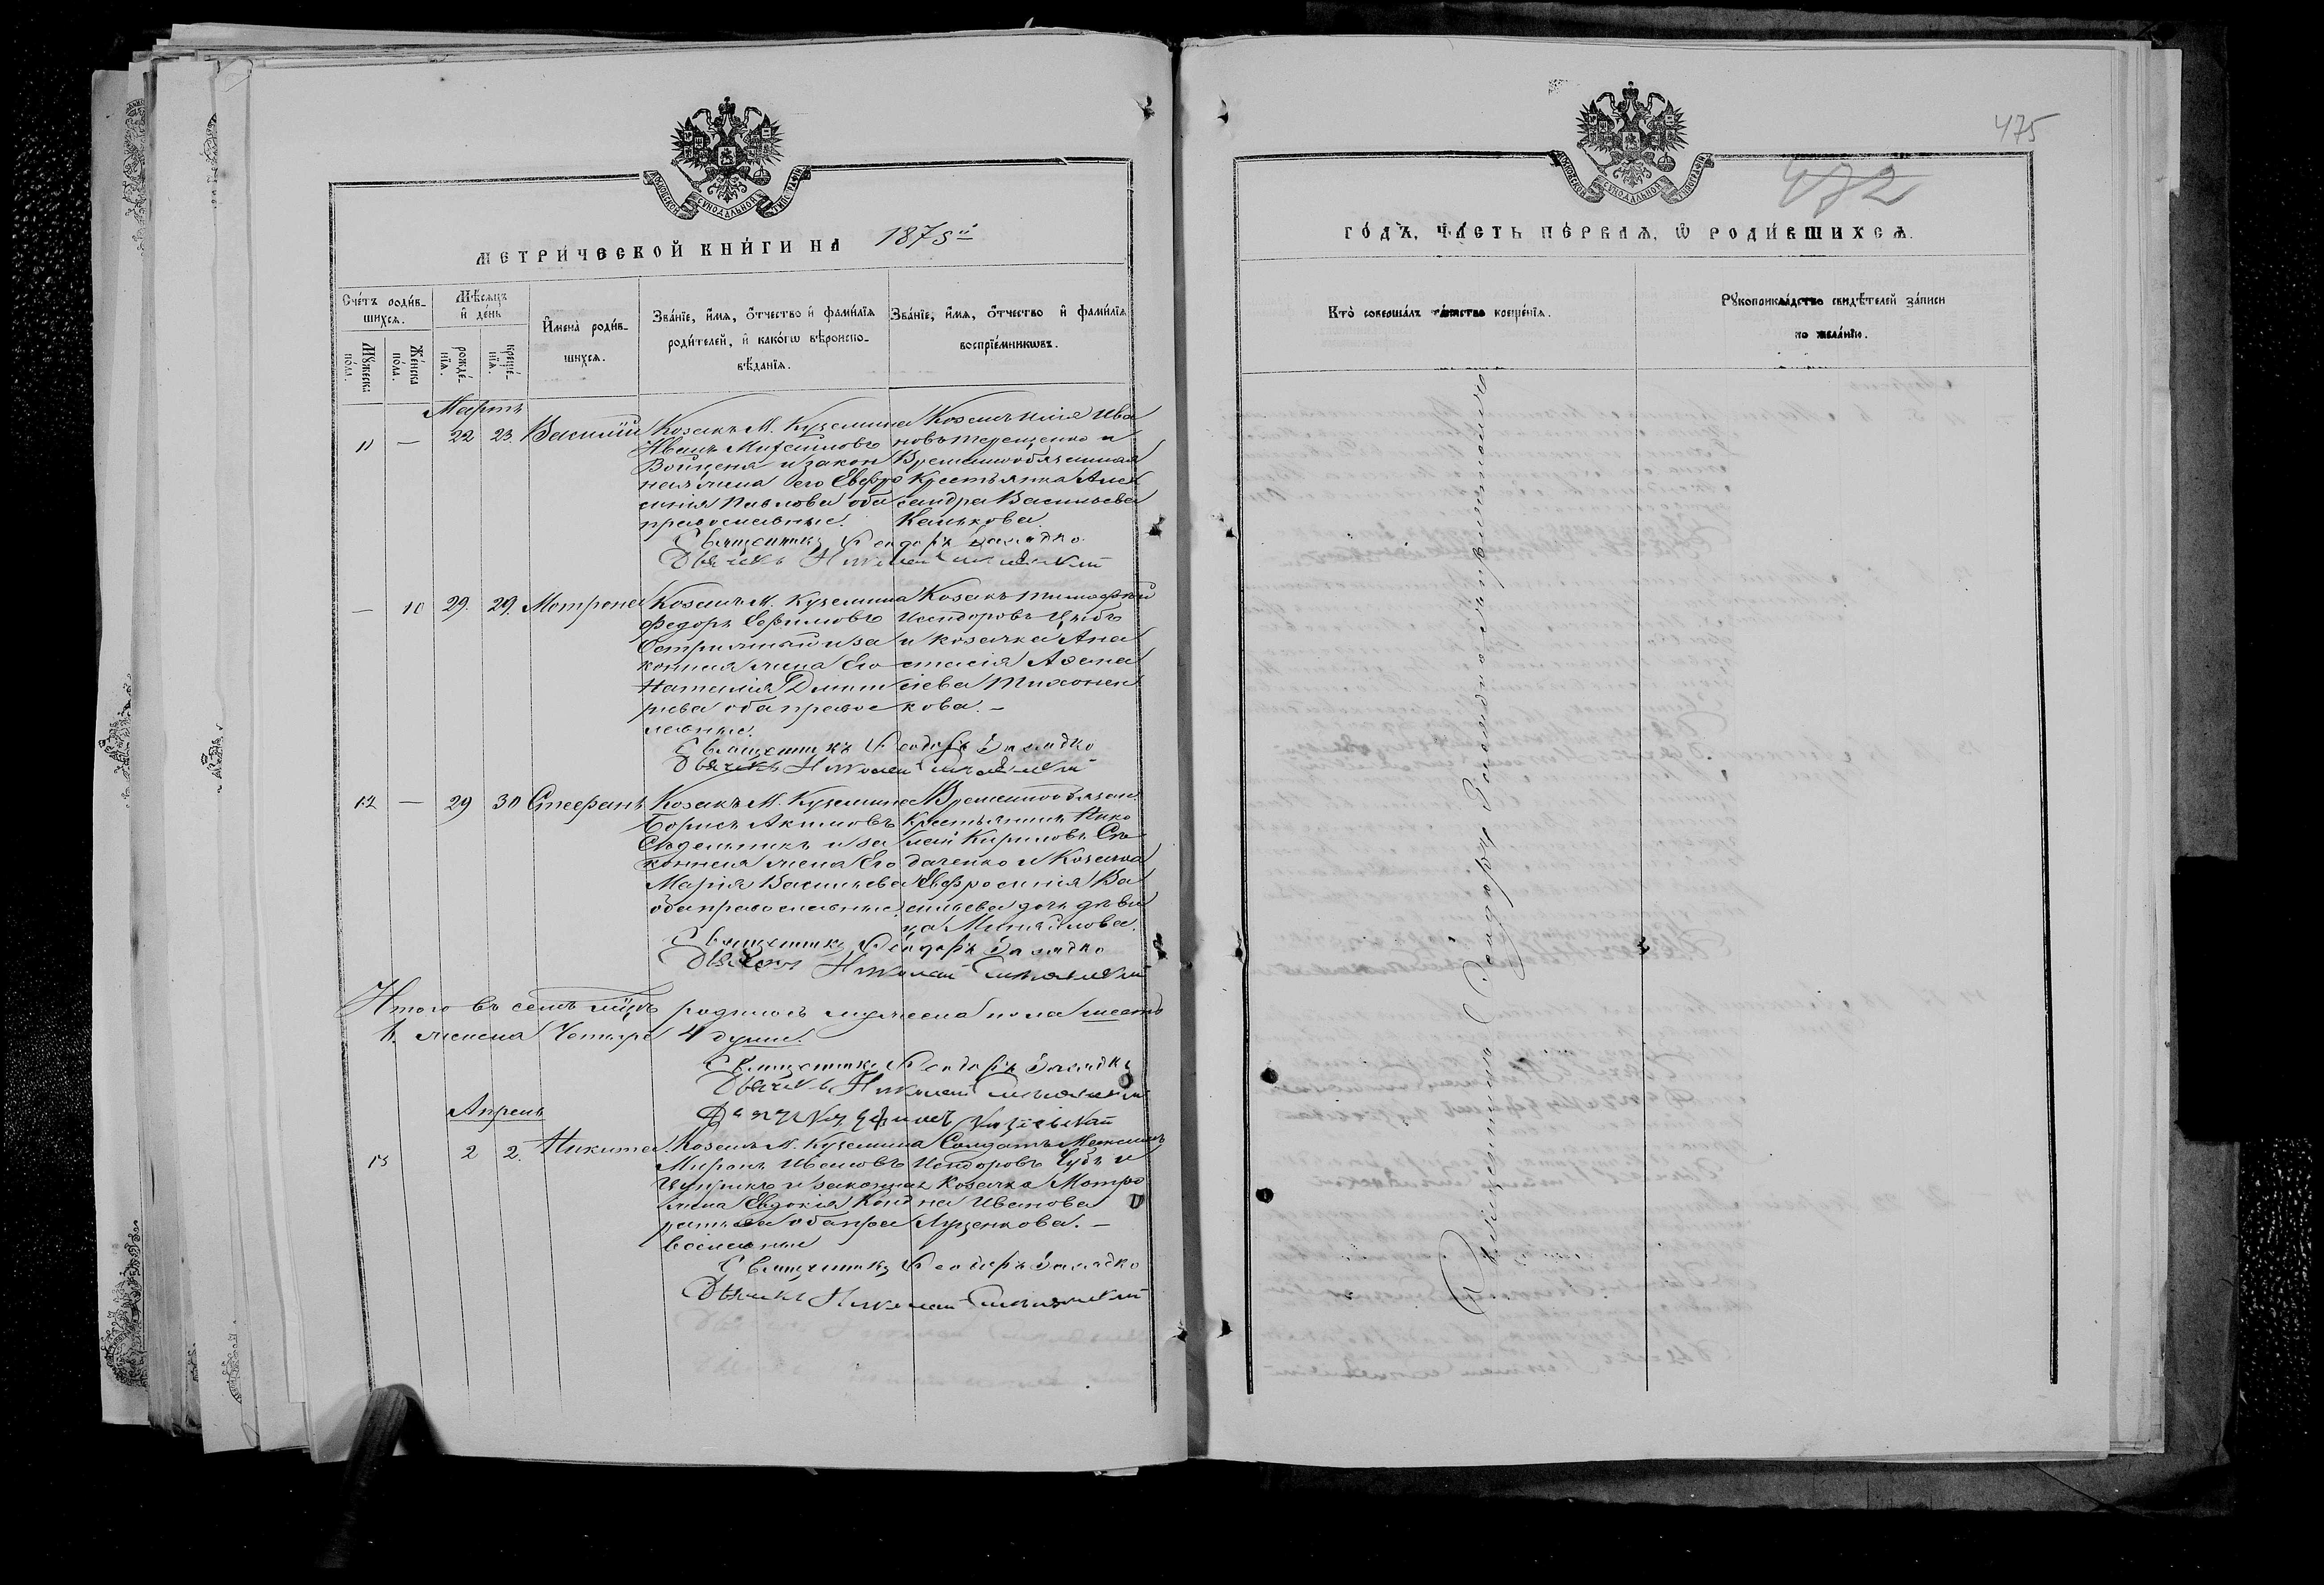 МЕТРИЧЕСКОЙ КНИГИ НА 1875й
Счетъ родив-
шихся.
Мужеска пола.
Женска пола.
Мѣсяцъ и день
рожде-
нія.
креще-
нія.
Имена родив-
шихся.
Званіе, имя, отчество и фамилія
родителей, и какогѡ вѣроиспо-
вѣданія.
Званіе, имя, отчество и фамилія
воспріемникѡвъ.
Мартъ
11 — 22 23. Василій
Козакъ М. Куземина
Иванъ Михаиловъ
Войценя и закон
ная жена его Евфро
синія Павлова оба
православные.
Козакъ Илія Ива
новъ Терещенко и
Временнообязанная
Крестьянка Алек
сандра Васильева
Канькова.
Священникъ Феодоръ Заладко
Дьячекъ Николай
— 10 29. 29. Матрона
Козакъ М. Куземина
Федоръ Ефимовъ
и за
конная жена Его
Наталія Димит
риева оба правос
лавные.
Козакъ Тимофей
Исидоровъ Цыбъ
и козачка Ана
стасія Афана
сіева Тихонен
кова. —
Священникъ Феодоръ Заладко
Дьячекъ Николай
12 — 29 30 Стефанъ
Козакъ М. Куземина
Борисъ Акимовъ
Сѣдельникъ и за
конная жена Его
Марія Васильева
оба православные.
Временнообязан.
Крестьянинъ Нико
лай Кириловъ
даченко и Козачка
Евфросинія Ва
сильева дочь дѣви
ца Михайлова.
Священникъ Феодоръ Заладко
Дьячекъ Николай
Итого въ семъ мцѣ родилось мужеска пола шесть
женска Четыре 4 души.
Священникъ Феодоръ Заладко
Дьячекъ Николай
Апрель
13 2 2. Никита
Козакъ М. Куземина
Миронъ Ивановъ
Цуприкъ и законная
жена Евдокія Конд
ратьева оба пра
вославные
Солдатъ Максимъ
Исидоровъ Чубъ и
Козачка Матро
на Иванова
Луценкова. —
Священникъ Феодоръ Заладко
Дьячекъ Николай
475
472
ГОДЪ, ЧАСТЬ ПЕРВАЯ, Ѡ РОДИВШИХСЯ.
Кто совершалъ таинство крещенія.
Рукоприкладство свидѣтелей записи
по желанію.
Священникъ Феодоръ Заладко